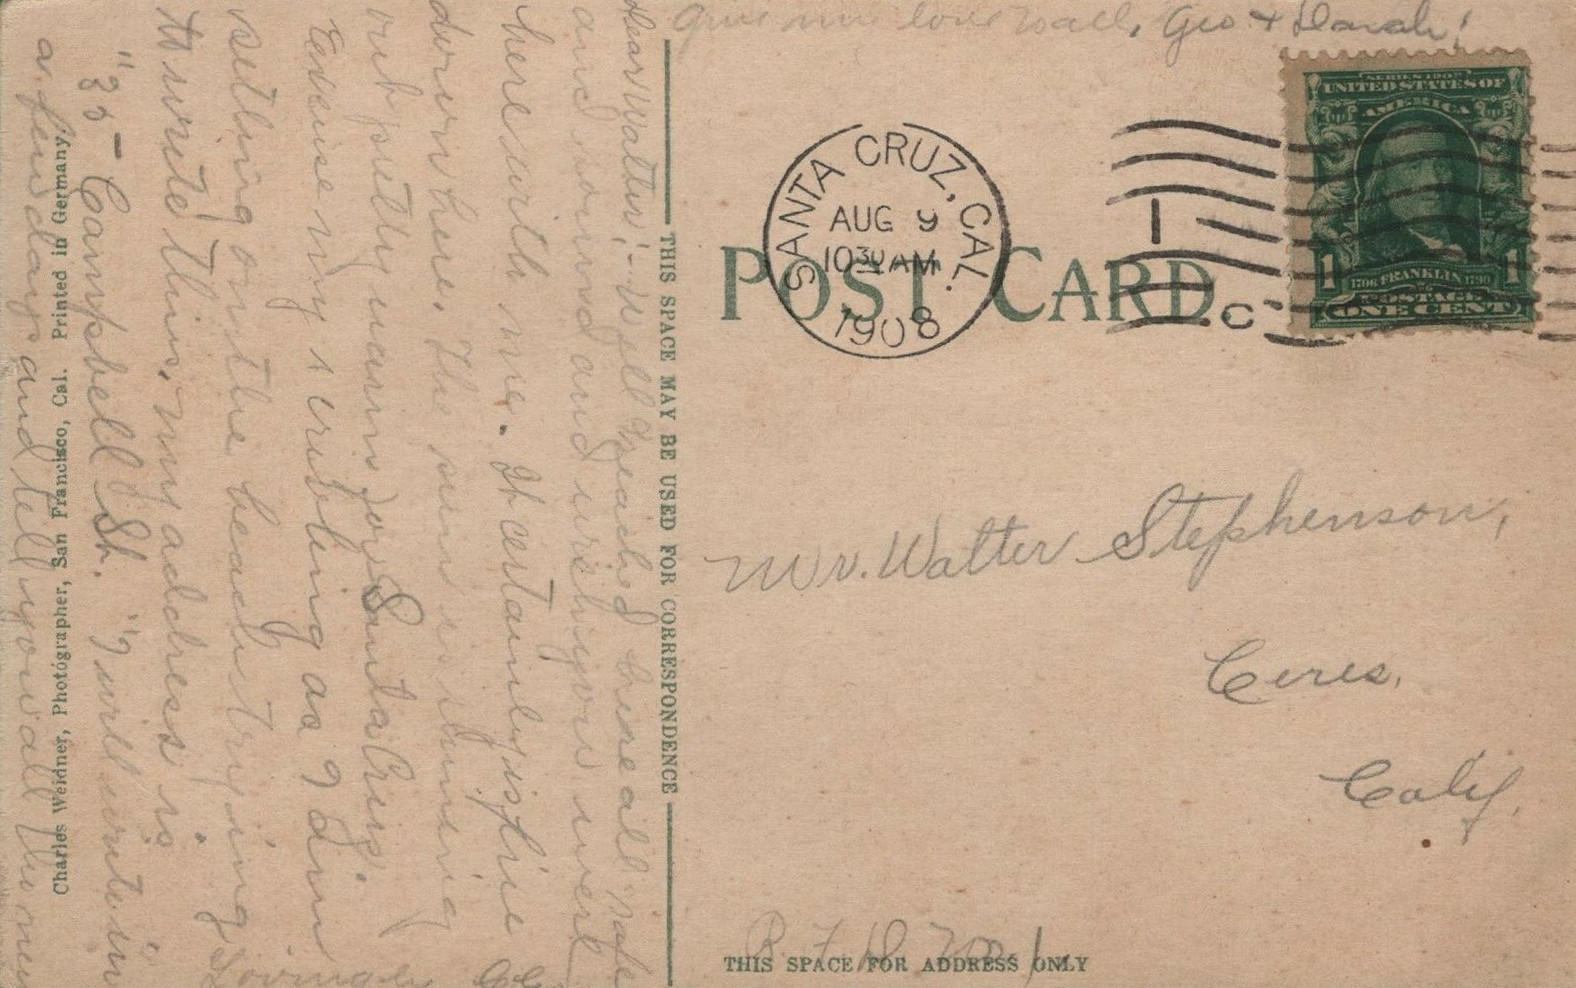 Give my love to all, Geo + Sarah!
SERIES 1902
UNITED STATES OF
AMERICA
1706 FRANKLIN 1790
1 1
POSTAGE
ONE CENT
SANTA CRUZ, CAL.
AUG 9
10 30 AM
1908
1
C
POST CARD.
Mr. Walter Stephenson,
Ceres,
Calif.
R.F.D. No. 1
THIS SPACE FOR ADDRESS ONLY
THIS SPACE MAY BE USED FOR CORRESPONDENCE
Dear Walter:- Well I reached here all safe
and sound and wish you were
here with me. It certainly is fine
down here. The sun is shining
out pretty warm for Santa Cruz.
Excuse my scribling as I am
setting on the beach trying
to write this. My address is
"35 - Campbell St." I will write in
a few days and tell you all the news
Lovingly
Charles Weidner, Photographer, San Francisco, Cal. Printed in Germany.